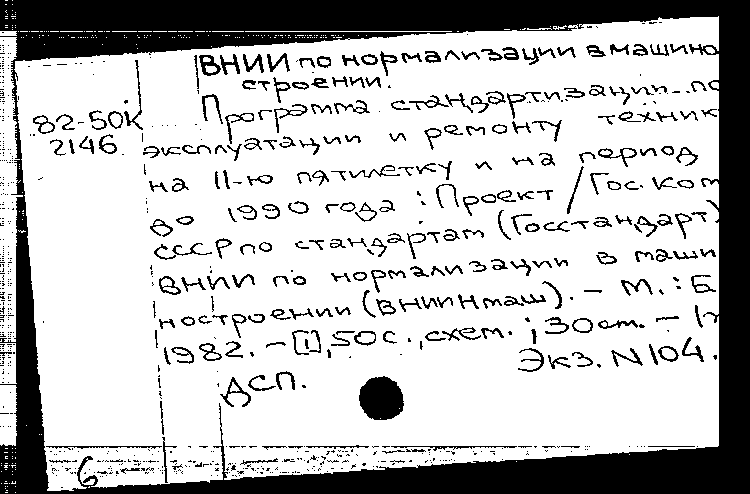 ВНИИ по нормализации в машино
строении.
82-50К
2146
Программа стандартизации по
эксплуатации и ремонту техник
на 11-ю пятилетку и на период
до 1990 года : Проект / Гос. ком
СССР по стандартам (Госстандарт)
ВНИИ по нормализации в маши
ностроении (ВНИИНмаш). - М. : Б
1982. - [1], 50 с., схем. ; 30 см. -
ДСП. Экз. N 104.
6